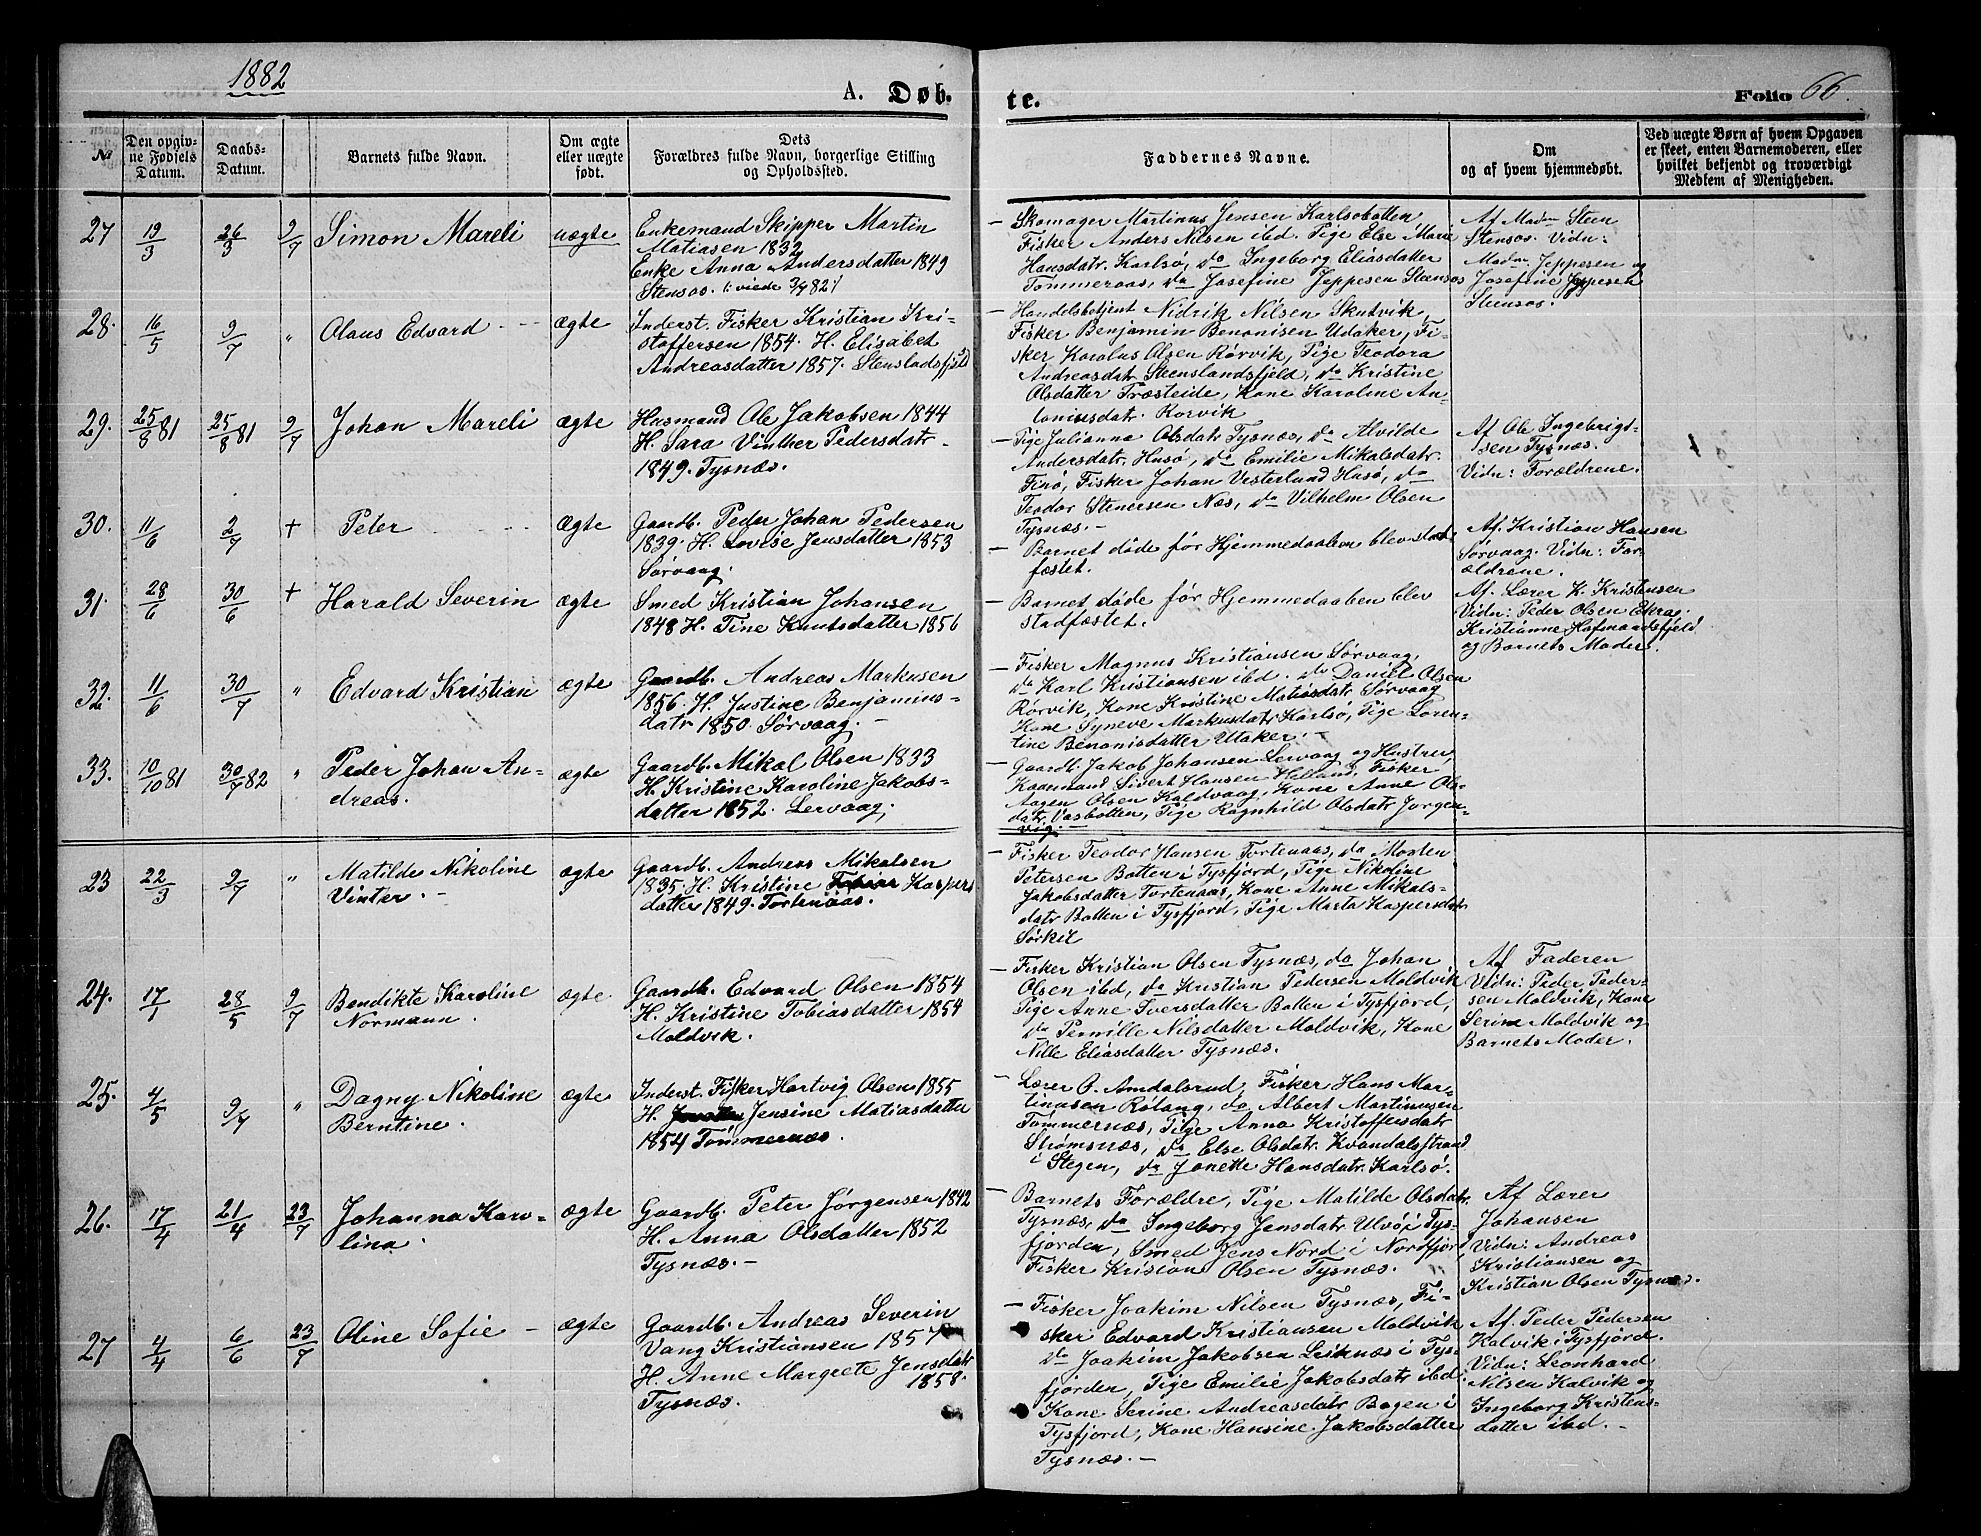 1882
A. Døb.
te.
Folio 66.
№
Den opgiv-
ne Fødsels
Datum.
Daabs-
Datum.
Barnets fulde Navn.
Om ægte
eller uægte
født.
Dets
Forældres fulde Navn, borgerlige Stilling
og Opholdssted.
Faddernes Navne.
Om
og af hvem hjemmedøbt.
Ved uægte Børn af hvem Opgaven
er skeet, enten Barnemoderen, eller
hvilket bekjendt og troværdigt
Medlem af Menigheden.
27 19/3 26/3 9/7 Simon Mareli uægte
Enkemand Skipper Martin
Matiasen 1832
Enke Anna Andersdatter 1849
Stensøs. (: viede 9/7 82 :)
— Skomager Martinus Jensen Karlsobotten
Fisker Anders Nilsen ibd. Pige Else Marie
Hansdatr. Karlsø, do Ingeborg Eliasdatter
Tømmeraas, do Josefine Jeppesen Stensøs
Af Madm Steen
Stensøs. Vidn:
Madm. Jeppesen og
Josefine Jeppesen
Stensøs.
28. 16/5 9/7 " Olaus Edvard ægte
Inderst. Fisker Kristian Kri-
stoffersen 1854. H. Elisabet
Andreasdatter 1857. Stenslandsfjeld
— Handelsbetjent Nidrik Nilsen Skutvik,
Fisker Benjamin Benonisen Udaker, Fi-
sker Karolus Olsen Rørvik, Pige Teodora
Andreasdatr Steenslandsfjeld, do Kristine
Olsdatter Træsteide, Kone Karoline An-
toniusdatr. Rorvik
29. 25/8 81 25/8 81 9/7 Johan Mareli ægte
Husmand Ole Jakobsen 1844
H. Sara Vinther Pedersdatr.
1849. Tysnæs.
— Pige Julianna Olsdatr Tysnæs, do Alvilde
Andersdatr. Husø, do Emilie Mikalsdatr.
Finø, Fisker Johan Vesterlund Husø, do
Teodor Stenersen Næs, do Vilhelm Olsen
Tysnæs. —
Af Ole Ingebrigt-
sen Tysnæs.
Vidn: Forældrene.
30. 11/6 2/7 + Peter ægte
Gaardb. Peder Johan Pedersen
1839. H. Lovise Jensdatter 1853
Sørvaag.
— Barnet døde før Hjemmedaaben blev stad-
fæstet.
Af. Kristian Hansen
Sørvaag. Vidn: For-
ældrene.
31. 28/6 30/6 + Harald Severin ægte
Smed Kristian Johansen
1848 H. Tine Knutsdatter 1856
— Barnet døde før Hjemmedaaben blev
stadfæstet.
Af. Lærer K. Kristensen
Vidn: Peder Olsen
Kristianne
og Barnets Moder.
32. 11/6 30/7 " Edvard Kristian ægte
Gaardb. Andreas Markusen
1856. H. Justine Benjamins-
datr 1850. Sørvaag. —
— Fisker Magnus Kristiansen Sørvaag,
do Karl Kristiansen ibd. do Daniel Olsen
Rørvik, Kone Kristine Matiasdatr Sørvaag
Kone Syneve Markusdatr Karlsø, Pige Loren-
tine Benonisdatter Utaker. —
33. 10/10 81 30/7 82 " Peder Johan An-
dreas.
ægte
Gaardb. Mikal Olsen 1833
H. Kristine Karoline Jakobs-
datter 1852. Lervaag.
— Gaardb. Jakob Johansen Lervaag og Hustru,
Kaarmand Sivert Hansen Helland, Fisker
Aagen Olsen Kaldvaag, Kone Anne Ols-
datr. Vasbotten, Pige Ragnhild Olsdatr Jorgen-
vig. —
23 22/3 9/7 " Matilde Nikoline
Vinter. —
ægte
Gaardb. Andreas Mikalsen
1835. H. Kristine Kaspers
datter 1849. Tortenaas.
— Fisker Teodor Hansen Tortenaas, do Morten
Petersen Botten i Tysfjord, Pige Nikoline
Jakobsdatter Tortenaas, Kone Anne Mikals-
datr Botten i Tysfjord, Pige Marta Kaspersdatr
Sørkil
24. 17/1 28/5 9/7 Bendikte Karoline
Normann.
ægte
Gaardb. Edvard Olsen 1854
H. Kristine Tobiasdatter 1854
Moldvik.
— Fisker Kristian Olsen Tysnæs, do Johan
Olsen ibd, do Kristian Pedersen Moldvik
Pige Anne Iversdatter Botten i Tysfjord,
do Pernille Nilsdatter Moldvik, Kone
Nille Eliasdatter Tysnæs.
Af Faderen
Vidn: Peder Peder-
sen Moldvik, Kone
Serine Moldvik og
Barnets Moder.
25. 4/5 9/7 " Dagny Nikoline
Berntine.
ægte
Inderst. Fisker Hartvig Olsen 1855
H. Jensine Matiasdatter
1854 Tømmernæs.
— Lærer O. Amdalsrud, Fisker Hans Mar-
tinusen Røtang, do Albert Martinusen
Tømmernæs, Pige Anna Kristoffersdatr
Strømsnæs, do Else Olsdatr. Kvandalsstrand
i Stegen, do Jonette Hansdatr. Karlsø.
26. 17/4 21/4 23/7 Johanna Karo-
lina.
ægte
Gaardb. Peter Jørgensen 1842
H. Anna Olsdatter 1852
Tysnæs. —
— Barnets Forældre, Pige Matilde Olsdatr.
Tysnæs, do Ingeborg Jensdatr Ulvø i Tys-
fjorden, Smed Jens Nord i Nordfjord
Fisker Kristian Olsen Tysnæs.
Af Lærer
Johansen
Vidn: Andreas
Kristiansen og
Kristian Olsen Tysnæs.
27 4/4 6/6 23/7 Oline Sofie — ægte
Gaardb. Andreas Severin
Vang Kristiansen 1857
H. Anne Margrete Jensdatr
1858.
Tysnæs.
— Fisker Joakim Nilsen Tysnæs, Fi-
sker Edvard Kristiansen Moldvik
do Joakim Jakobsen Leiknæs i Tys-
fjorden, Pige Emilie Jakobsdatr ibd.
Kone Serine Andreasdatr Bogen i
Tysfjord, Kone Hansine Jakobsdatter
Tysnæs. —
Af. Peder Pedersen
Kalvik i Tysfjord.
Vidn: Leonhard
Nilsen Kalvik og
Ingeborg Kristens-
datter ibd. —